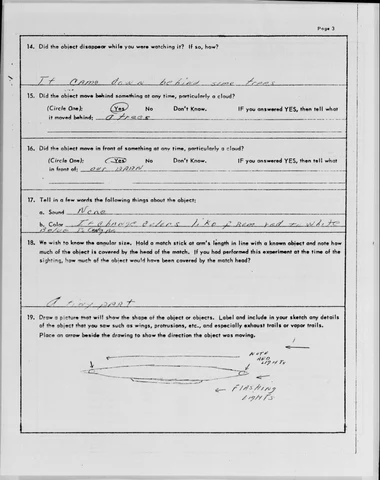 Page 3
14. Did the object disappear while you were watching it? If so, how?
It came down behind some trees
15. Did the object move behind something at any time, particularly a cloud?
(Circle One): Yes No Don't Know. IF you answered YES, then tell what
it moved behind: a trees
16. Did the object move in front of something at any time, particularly a cloud?
(Circle One): Yes No Don't Know. IF you answered YES, then tell what
in front of: our BARN
17. Tell in a few words the following things about the object:
a. Sound None
b. Color It change colors like from red to white
18. We wish to know the angular size. Hold a match stick at arm's length in line with a known object and note how
much of the object is covered by the head of the match. If you had performed this experiment at the time of the
sighting, how much of the object would have been covered by the match head?
a tiny part
19. Draw a picture that will show the shape of the object or objects. Label and include in your sketch any details
of the object that you saw such as wings, protrusions, etc., and especially exhaust trails or vapor trails.
Place an arrow beside the drawing to show the direction the object was moving.
FLASHING
LIGHTS